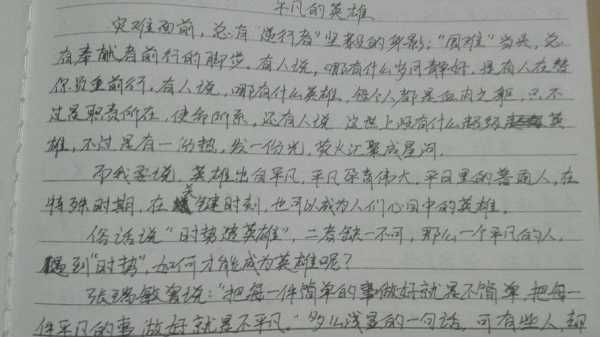 平凡的英雄
灾难面前，总有“逆行者”坚毅的身影；“国难”当头，总
有奉献者前行的脚步。有人说，哪有什么岁月静好，是有人在替
你负重前行。有人说，哪有什么英雄，每个人都是血肉之躯，只不
过是职责所在，使命所系，还有人说 这世上没有什么超级英
雄，不过是有一份热，发一份光，萤火汇聚成星河。
而我要说，英雄出自平凡，平凡孕育伟大，平日里的普通人，在
特殊时期，在关键时刻，也可以成为人们心目中的英雄。
俗话说“时势造英雄”，二者缺一不可，那么一个平凡的人，
遇到“时势”，如何才能成为英雄呢？
张瑞敏曾说：“把每一件简单的事做好就是不简单，把每一
件平凡的事做好就是不平凡。”多么浅显的一句话，可有些人，却